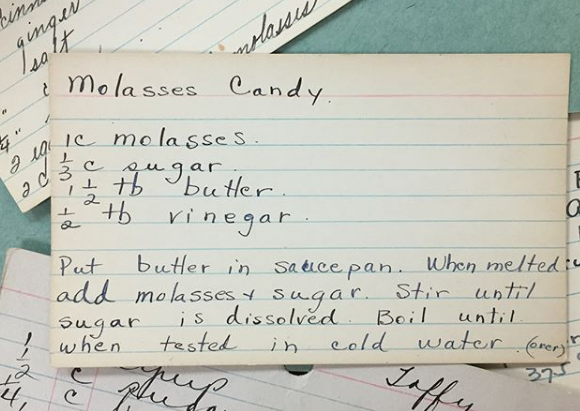 cinn
ginger
salt
molasses
2
2 c
Molasses Candy.
1c molasses.
1/3 c sugar
1 1/2 tb butter.
1/2 tb vinegar.
Put butter in saucepan. When melted
add molasses & sugar. Stir until
sugar is dissolved. Boil until
when tested in cold water. (over)
375
1
1/2 c
1/4 c
Taffy